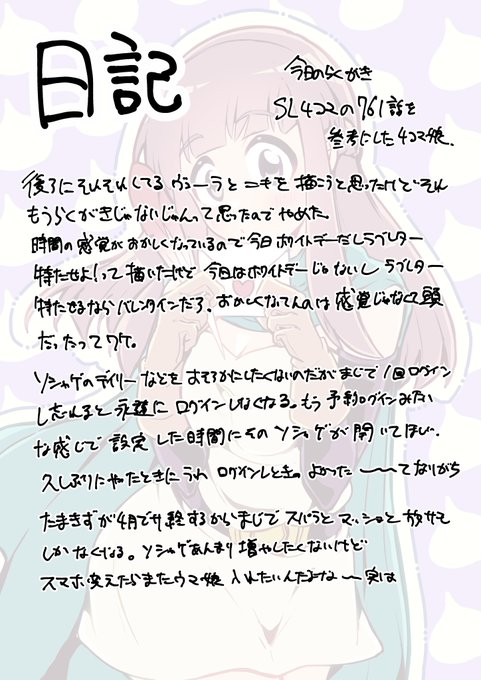 日記
今日のらくがき
SL4コマの761話を
参考にした4コマ娘。
後ろにそれぞれしてる ヴューラと ニキを 描こうと思ったけどそれ
もうらくがきじゃないじゃん。って思ったのでやめた。
時間の感覚がおかしくなっているので今日ホワイトデーだしラブレター
持たせよ!って描いたけど 今日はホワイトデーじゃないし ラブレター
持たせるならバレンタインだろ。おかしくなってんのは感覚じゃなくて頭
だったってワケ。
ソシャゲのデイリーなどをおろそかにしたくないのだがまじで1回ログイン
し忘れると永遠にログインしなくなる。もう予約ログインみたい
な感じで設定した時間にそのソシャゲが開いてほしい。
久しぶりにやったときにうわ ログインしとき。よかった〜〜てなりがち
たまきずが4月でサ終するからまじで スバラと マッショと 放サモ
しかなくなる。ソシャゲあんまり増やしたくないけど
スマホ変えたらまたウマ娘 入れたいんだよな〜実は